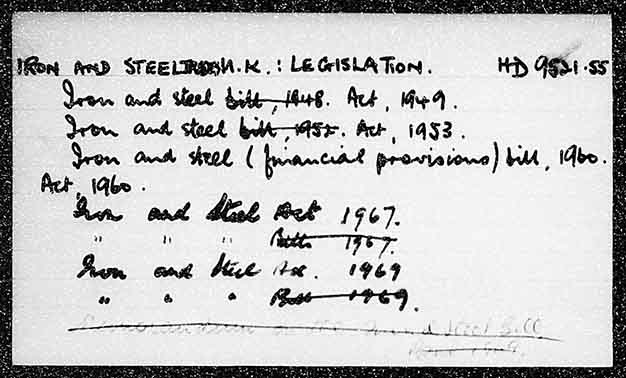 IRON AND STEEL TRADE U.K. : LEGISLATION. HD 9521.55
Iron and steel bill, 1948. Act, 1949.
Iron and steel bill, 1952. Act, 1953.
Iron and steel (financial provisions) bill, 1960.
Act, 1960.
Iron and Steel Act 1967.
" " " Bill 1967.
Iron and Steel Act. 1969
" " " Bill 1969.
Memorandum on the and steel Bill
1969.